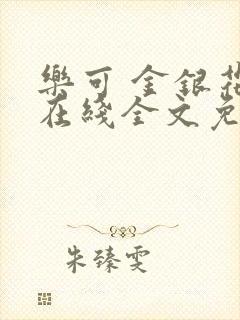 樂可 金銀花
在綫全文免
朱臻雯